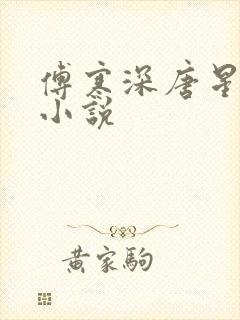 傅寒深唐星
小説
黄家駒